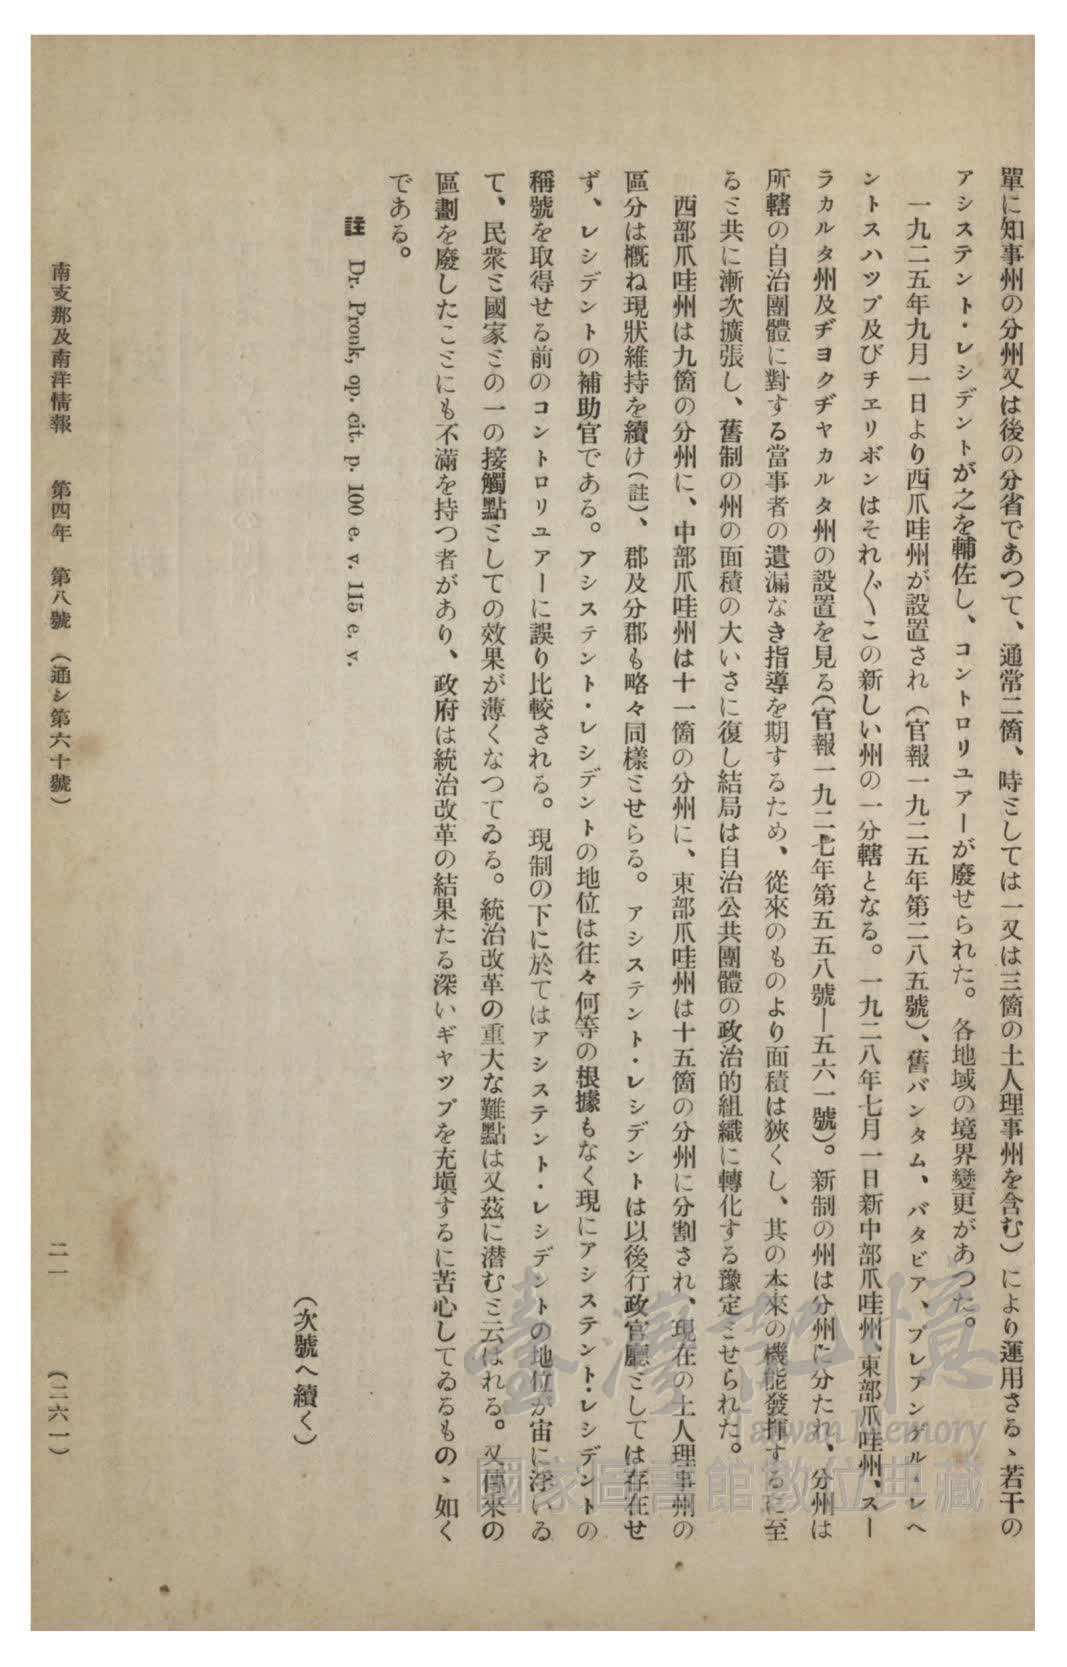 單に知事州の分州又は後の分省であつて、通常二箇、時としては一又は三箇の土人理事州を含む）により運用さるゝ若干の
アシステント・レシデントが之を輔佐し、コントロリユアーが廢せられた。各地域の境界變更があつた。
一九二五年九月一日より西爪哇州が設置され（官報一九二五年第二八五號）、舊バンタム、バタビア、プレアンゲル・レヘ
ントスハツプ及びチエリボンはそれ〴〵この新しい州の一分轄となる。一九二八年七月一日新中部爪哇州、東部爪哇州、スー
ラカルタ州及ヂヨクヂヤカルタ州の設置を見る（官報一九二七年第五五八號―五六一號）。新制の州は分州に分たれ、分州は
所轄の自治團體に對する當事者の遺漏なき指導を期するため、從來のものより面積は狹くし、其の本來の機能發揮するに至
ると共に漸次擴張し、舊制の州の面積の大いさに復し結局は自治公共團體の政治的組織に轉化する豫定とせられた。
西部爪哇州は九箇の分州に、中部爪哇州は十一箇の分州に、東部爪哇州は十五箇の分州に分割され、現在の土人理事州の
區分は概ね現狀維持を續け（註）、郡及分郡も略々同樣とせらる。アシステント・レシデントは以後行政官廳としては存在せ
ず、レシデントの補助官である。アシステント・レシデントの地位は往々何等の根據もなく現にアシステント・レシデントの
稱號を取得せる前のコントロリユアーに誤り比較される。現制の下に於てはアシステント・レシデントの地位が宙に浮いゐる
て、民衆と國家との一の接觸點としての效果が薄くなつてゐる。統治改革の重大な難點は又茲に潜むと云はれる。又傳來の
區劃を廢したことにも不滿を持つ者があり、政府は統治改革の結果たる深いギヤツプを充塡するに苦心してゐるものゝ如く
である。
註　Dr. Pronk, op. cit. p. 100 e. v. 115 e. v.
（次號へ續く）
南支那及南洋情報　第四年　第八號　（通シ第六十號）　二一　（二六一）
臺灣記憶
Taiwan Memory
國家圖書館數位典藏